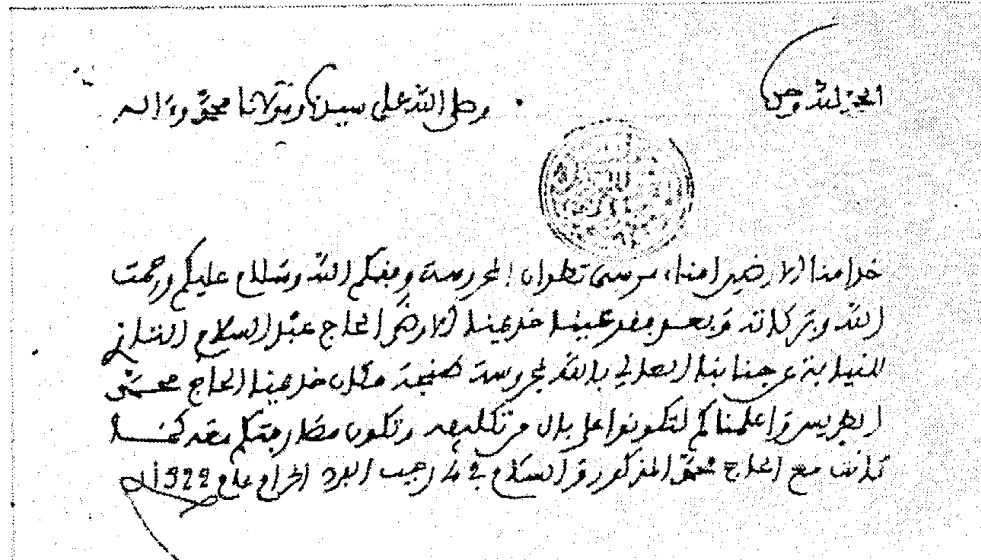 الحمد لله وحده وصلى الله على سيدنا ومولانا محمد وءاله
خدامنا الارضين امناء مرسى تطوان المحروسة وفقكم الله وسلام عليكم ورحمت
الله وبركاته وبعد فقد عينا خديمنا الارضى الحاج عبد السلام التازي
للنيابة عن جنابنا العالي بالله بمحروسة طنجة مكان خديمنا الحاج محمد
الطريس واعلمناكم لتكونوا على بال من تكليفه وتكون مخابرتكم معه كما
كانت مع الحاج محمد المذكور والسلام في 4 رجب الفرد الحرام عام 1322